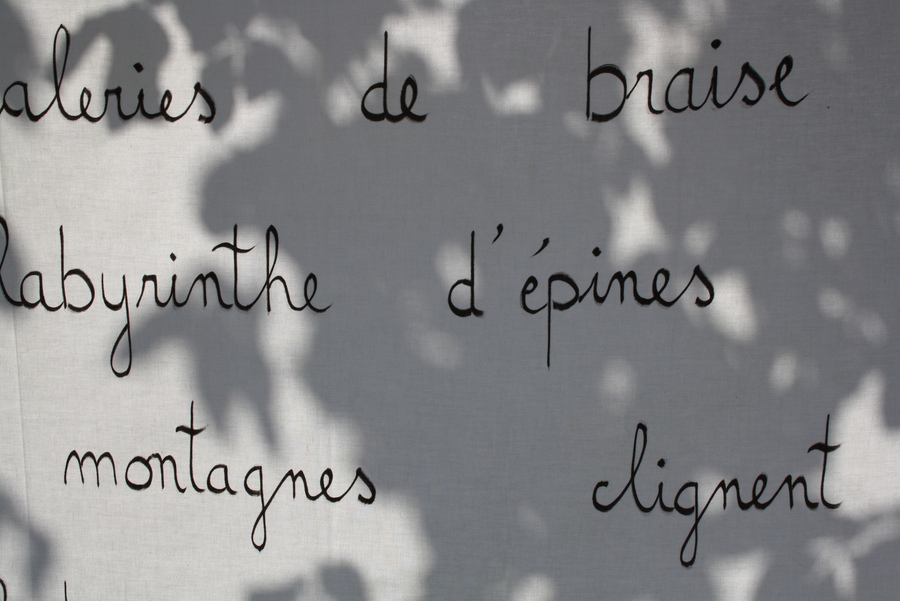 aleries de braise
labyrinthe d'épines
montagnes clignent